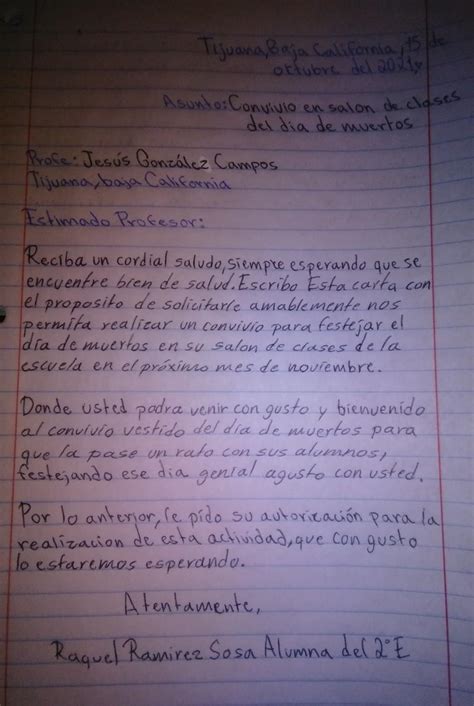 Tijuana, Baja California, 15 de
octubre del 2021,
Asunto: Convivio en salon de clases
del dia de muertos
Profe: Jesús González Campos
Tijuana, baja California
Estimado Profesor:
Reciba un cordial saludo, siempre esperando que se
encuentre bien de salud. Escribo Esta carta con
el proposito de solicitarle amablemente nos
permita realizar un convivio para festejar el
día de muertos en su salon de clases de la
escuela en el próximo mes de noviembre.
Donde usted podra venir con gusto y bienvenido
al convivio vestido del día de muertos para
que la pase un rato con sus alumnos,
festejando ese dia genial agusto con usted.
Por lo anterior, le pido su autorización para la
realizacion de esta actividad, que con gusto
lo estaremos esperando.
Atentamente,
Raquel Ramirez Sosa Alumna del 2°E